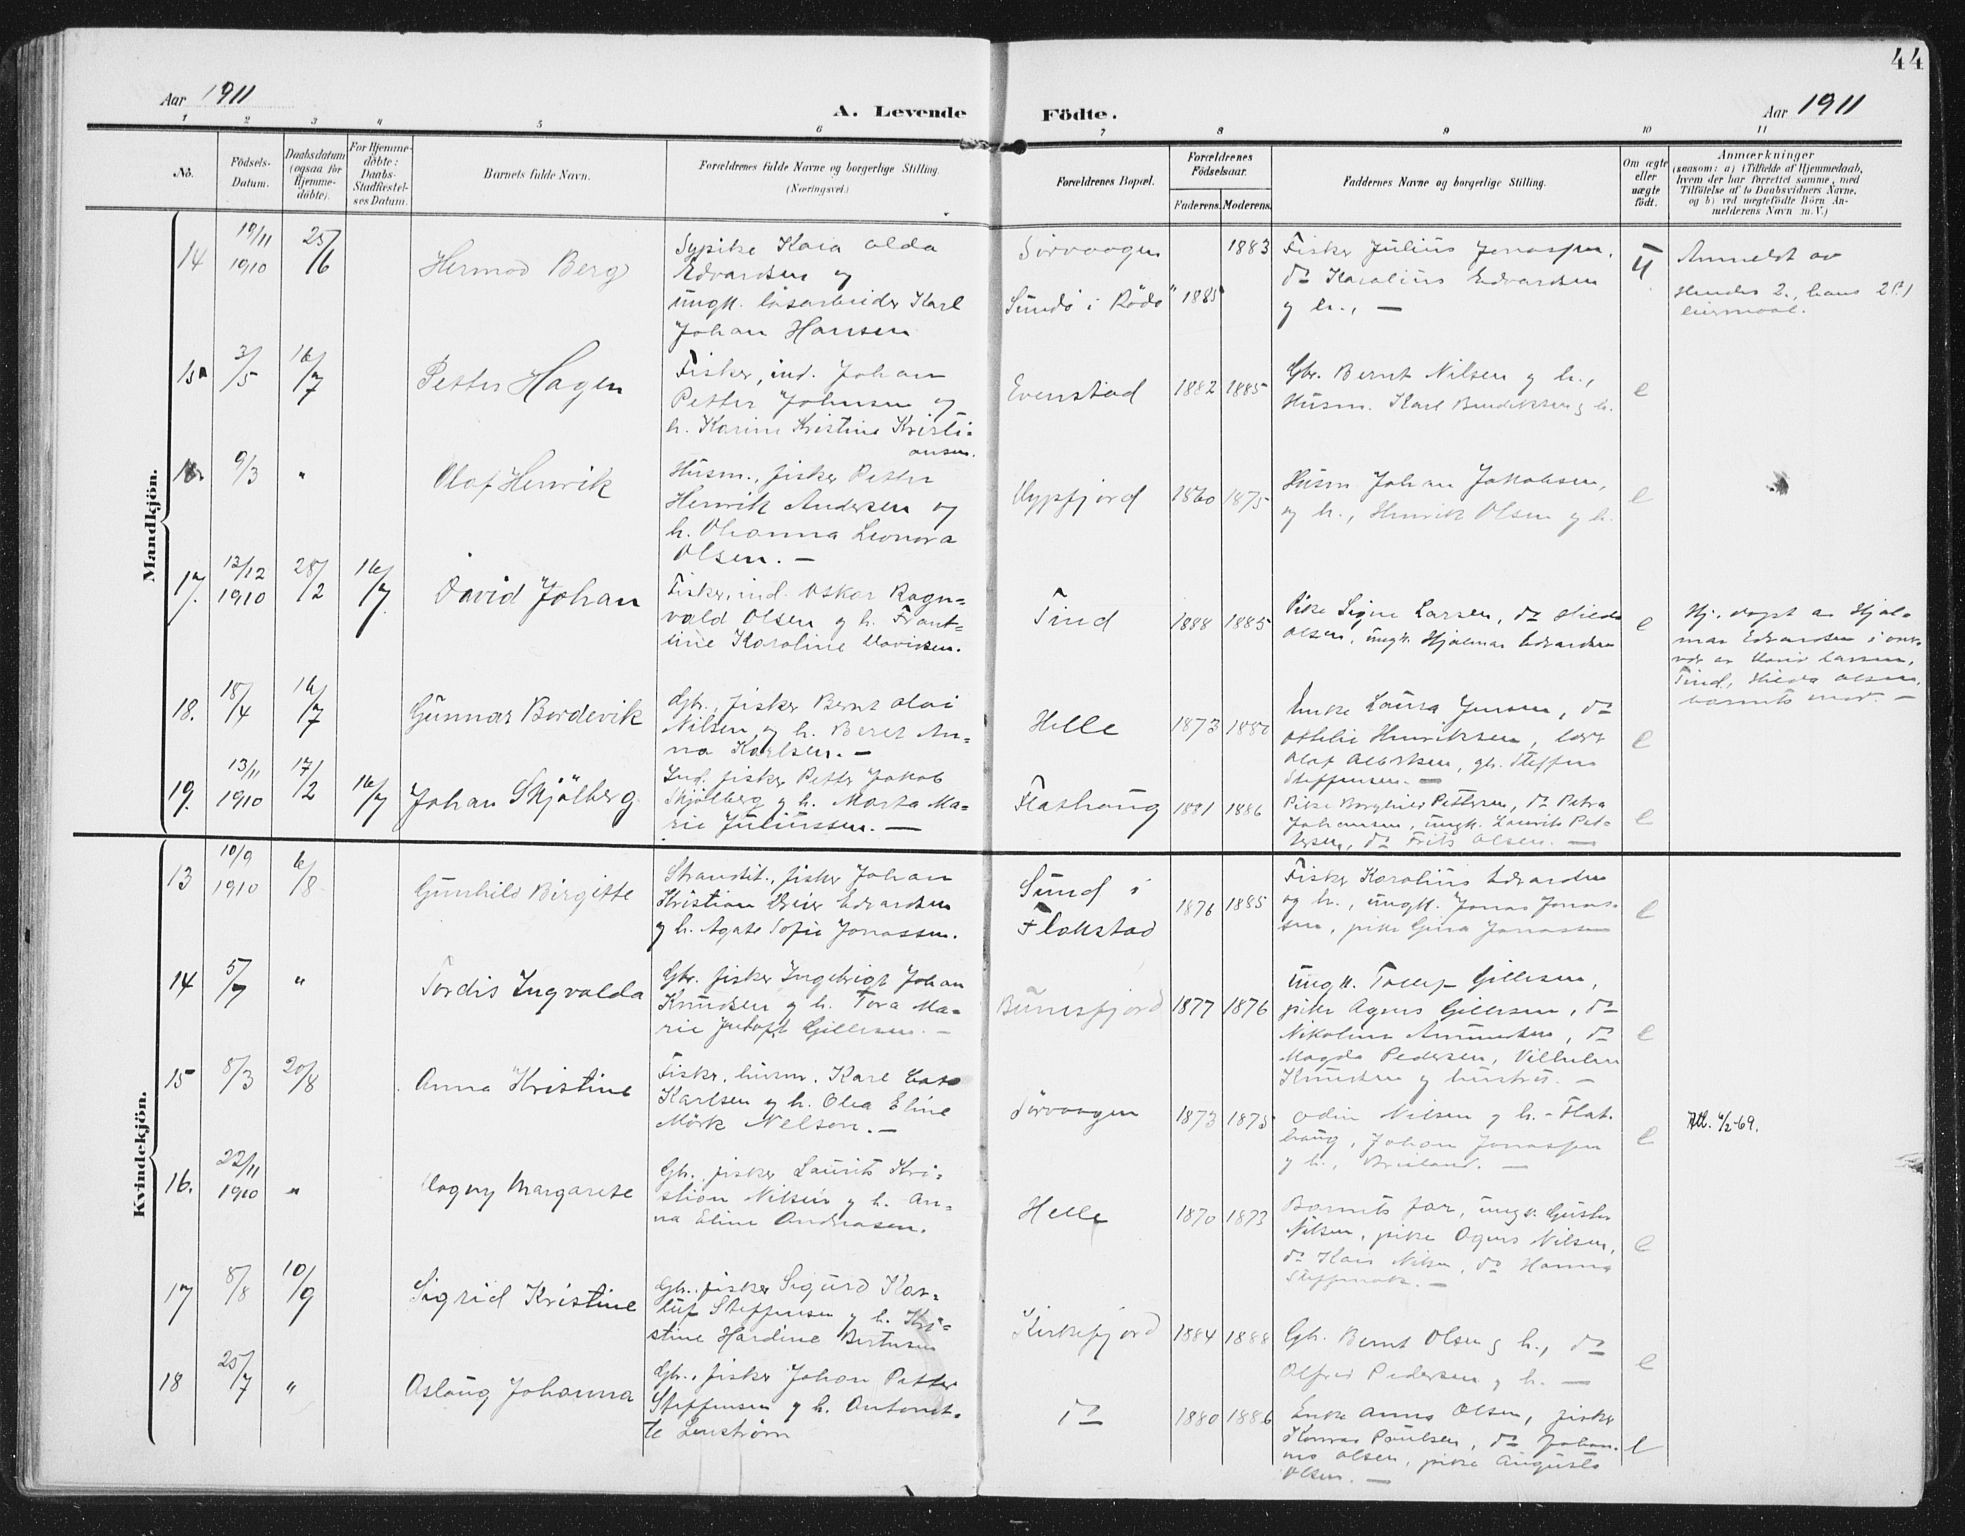 44
Aar 1911
A. Levende Födte.
Aar 1911
1 2 3 4 5 6 7 8 9 10 11
No.
Födsels-
Datum.
Daabsdatum
(ogsaa for
Hjemme-
döbte).
For Hjemme-
döbte:
Daabs-
Stadfæstel-
ses Datum.
Barnets fulde Navn.
Forældrenes fulde Navne og borgerlige Stilling.
(Næringsvei.)
Forældrenes Bopæl.
Forældrenes
Födselsaar.
Faderens. Moderens.
Faddernes Navne og borgerlige Stilling.
Om ægte
eller
uægte
födt.
Anmærkninger
(saasom: a) i Tilfælde af Hjemmedaab,
hvem der har forrettet samme, med
Tilföielse af to Daabsvidners Navne,
og b) ved uægtefödte Börn An-
melderens Navn m. V.)
Mandkjön.
14
19/11
1910
25/6
Hermod Berg
Sypike Kaia Alda
Edvardsen og
ungk. løsarbeider Karl
Johan Hansen
Sørvaagen
Sundø i Rødø
1885
1883
Fisker Julius Jonassen,
do Karolius Edvardsen
og h., —
U
Anmeldt av
Hendes 2., hans 2det
leiermaal.
15
3/5
16/7
Petter Hagen
Fisker, ind. Johan
Petter Johnsen og
h. Karine Kristine Kristi-
ansen.
Evenstad
1882 1885
Gbr. Bernt Nilsen og h.,
Husm. Karl Bendiksen og h.
e
16
9/3
"
Olaf Henrik
Husm., fisker Petter
Henrik Andersen og
h. Ohanna Leonora
Olsen. —
1860 1875
Husm Johan Jakobsen,
og h., Henrik Olsen og h.
e
17.
12/12
1910
28/2
16/7
David Johan
Fisker, ind. Oskar Ragn-
vald Olsen og h. Frant-
sine Karoline Davidsen.
Tind
1888 1885
Pike Signe Larsen, do Hilda
Olsen, ungk. Hjalmar Edvardsen
e
Hj. døpt av Hjal-
mar Edvardsen i over-
vær av
Tind, Hilda Olsen,
barnets mor. —
18.
18/4
16/7
Gunnar Bordevik
Gbr., fisker Bernt Olai
Nilsen og h. Beret An-
na Karlsen. —
Helle
1873 1880
Enke Laura Jensen, do
Othilie Henriksen, lærer
Olaf Albertsen, gb. Steffen
Steffensen. —
e
19.
13/11
1910
17/2
16/7
Johan Skjølberg
Ind. fisker Petter Jakob
Skjølberg og h. Marta Ma-
rie Juliussen. —
Flathaug
1881 1886
Pike Borghild Pettersen, do Petra
Johansen, ungk. Laurits Pet-
tersen, do Frits Olsen. —
e
Kvindekjön.
13
10/9
1910
6/8
Gunhild Birgitte
Strandsit., fisker Johan
Kristian Meier Edvardsen
og h. Agate Sofie Jonassen.
Sund i
Flakstad
1876 1885
Fisker Karolius Edvardsen
og h., ungk. Jonas Jonas-
sen, pike Gina Jonassen
e
14
5/7
"
Tordis Ingvalda
Gbr. fisker Ingebrigt Johan
Knudsen og h. Tora Ma-
rie Gillesen. —
Bunesfjord
1877 1876
Ungk. Tollef Gillesen,
pike Agnes Gillesen, do
Nikoline Amundsen, do
Magda Pedersen, Vilhelm
Knudsen og hustru. —
e
15
8/3
20/8
Anna Kristine
Fisker, husm. Karl
Karlsen og h. Olea Eline
Mörk Nelson. —
Sørvaagen
1873 1875
Odin Nilsen og h. - Flat-
haug, Johan Jonassen
og h., Breiland. —
e
Att. 6/2-69.
16.
22/11
1910
"
Dagny Margarete
Gbr. fisker Laurits Kri-
stian Nilsen og h. An-
na Eline Andreasen.
Helle
1870 1873
Barnets far, ungk. Gustav
Nilsen, pike Agnes Nilsen,
do Kaia Nilsen, do Hanna
e
17
8/8
10/9
Sigrid Kristine
Gbr., fisker Sigurd Kor-
luf Steffensen og h. Kri-
stine Hardine Bertusen
Kirkefjord
1884 1888
Gbr. Bernt Olsen og h., do
Alfred Pedersen og h. —
e
18
25/7
"
Aslaug Johanna
Gbr., fisker Johan Petter
Steffensen og h. Antonet-
te Lenstrøm
do
1880 1886
Enke Anna Olsen, fisker
Konrad Paulsen, do Johan-
nes Olsen, pike Augusta
Olsen. —
e